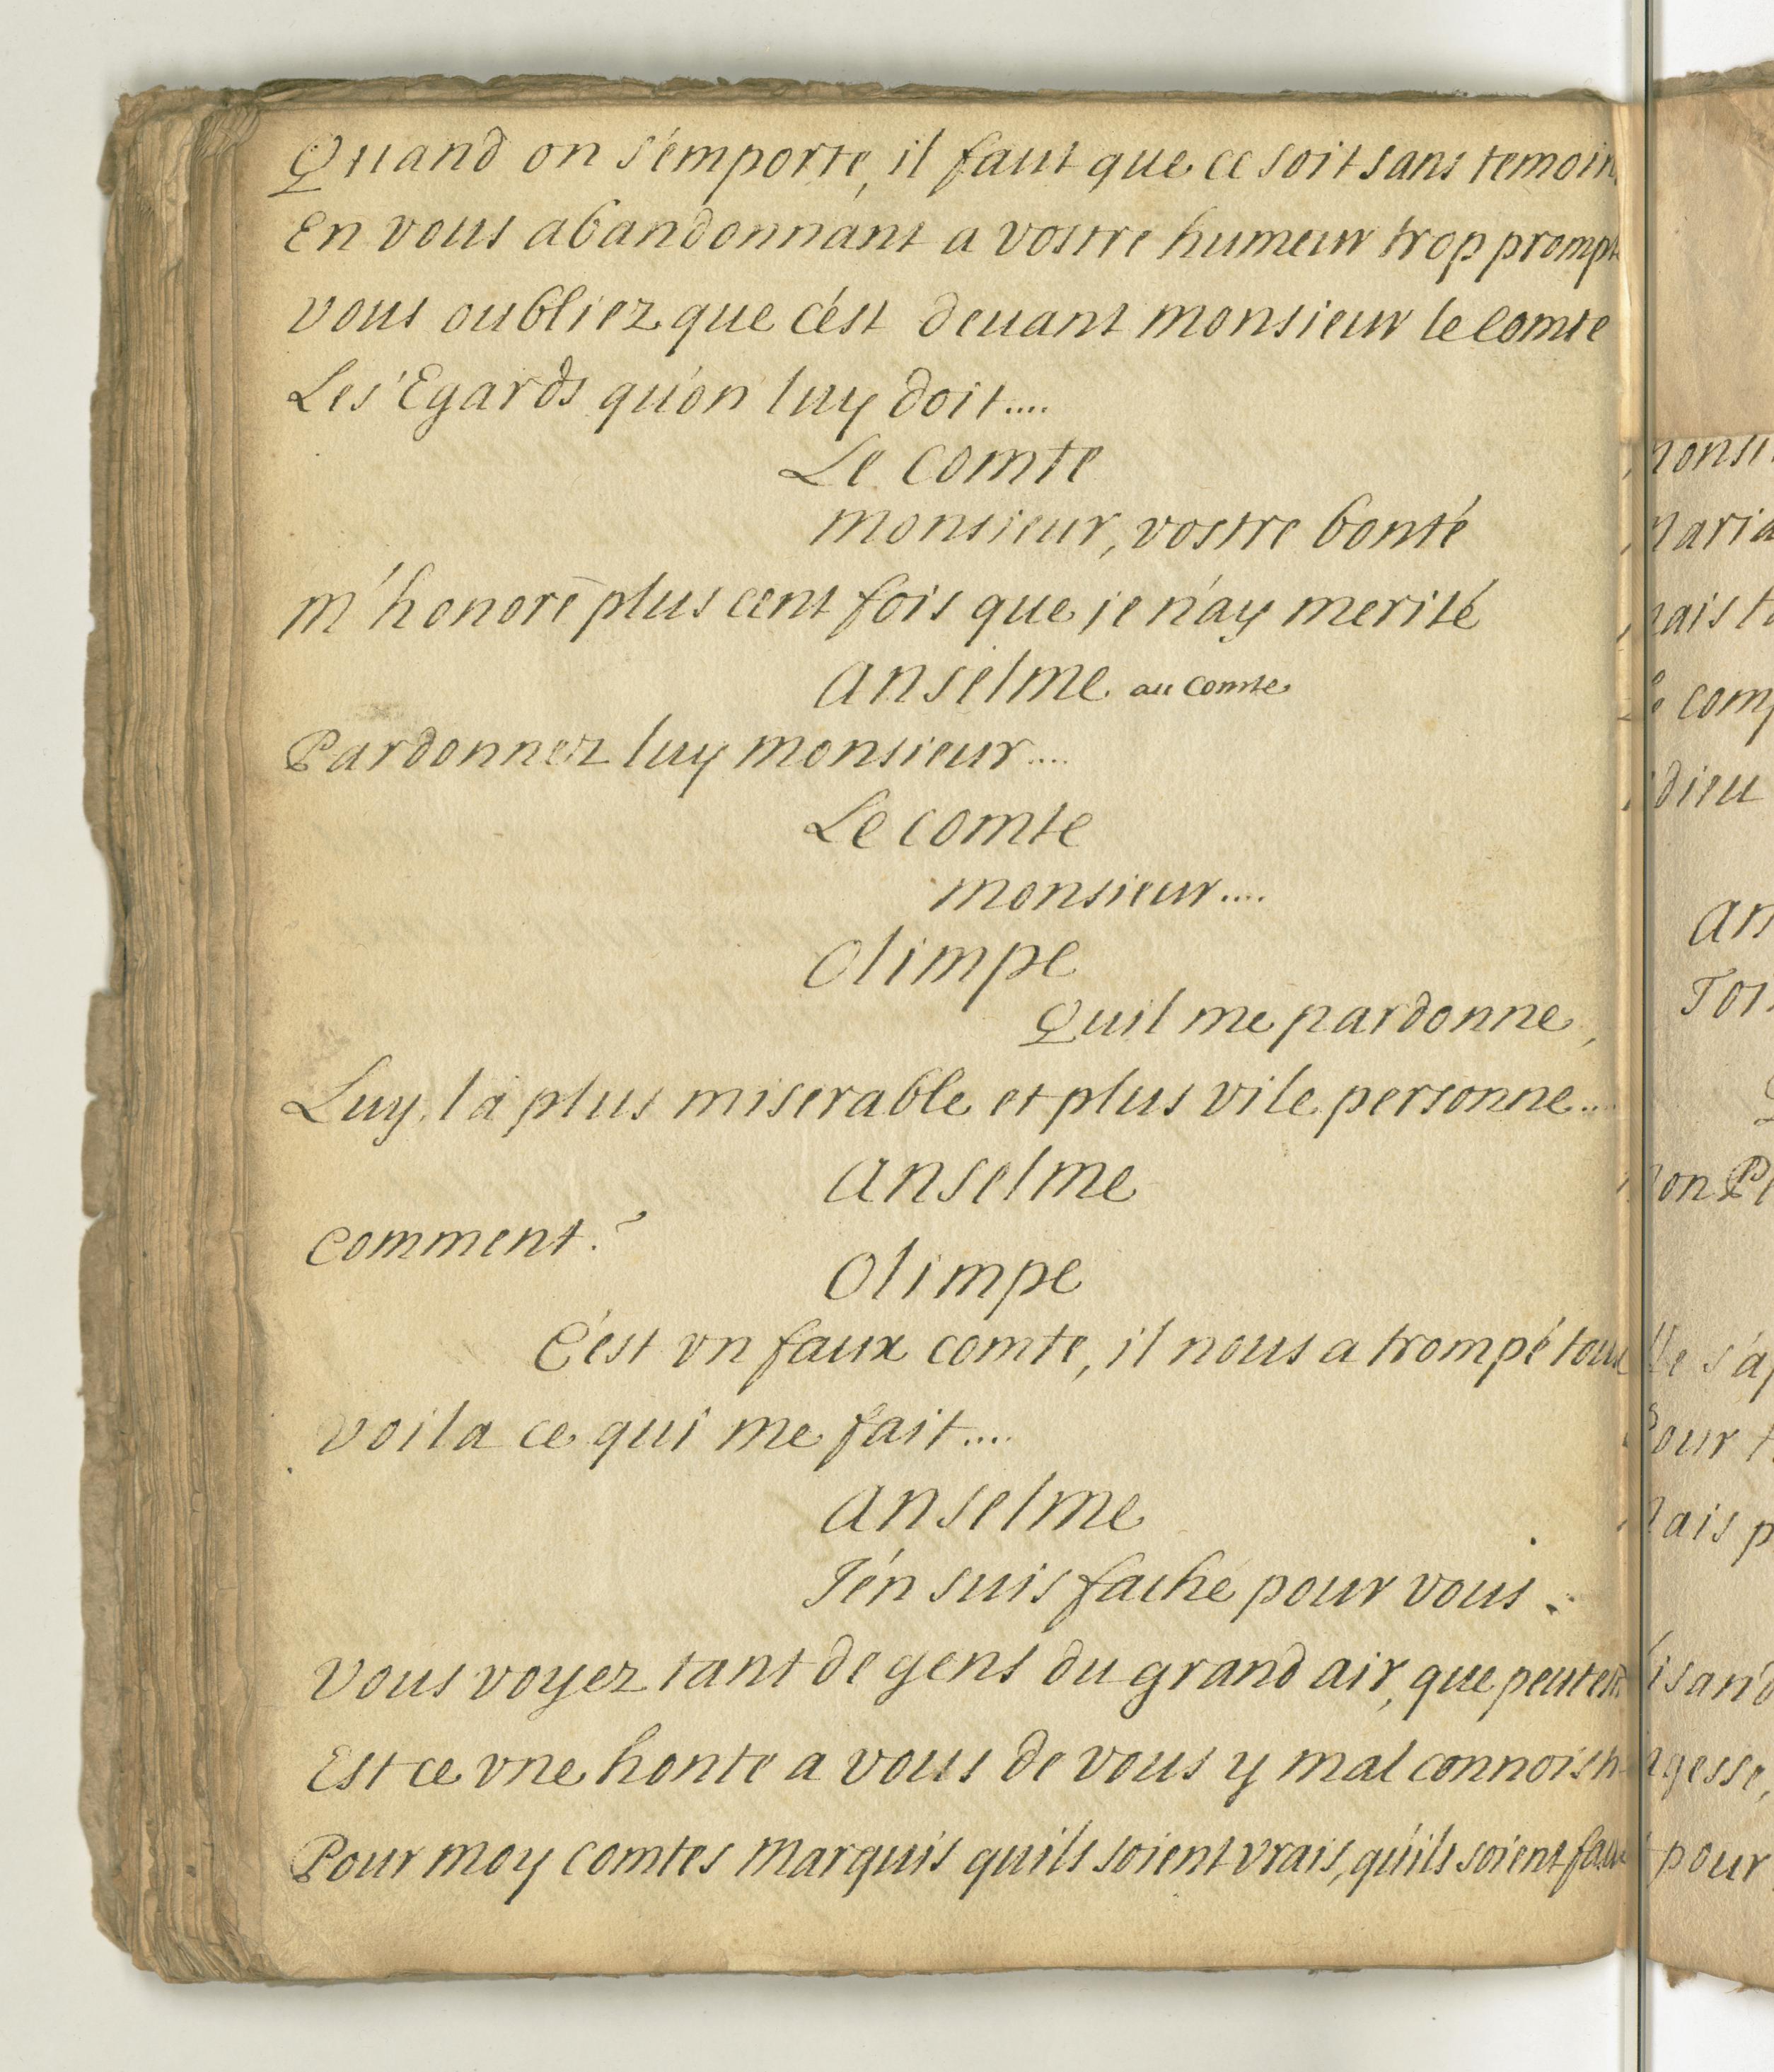 Quand on s'emporte, il faut que ce soit sans temoin
En vous abandonnant a vostre humeur trop prompte
vous oubliez que c'est devant monsieur le comte
Les Egards qu'on luy doit....
Le comte
monsieur, vostre bonté
m'honore plus cent fois que je n'ay merité
anselme au comte
Pardonnez luy monsieur....
Le comte
monsieur....
Olimpe
Quil me pardonne,
Luy, la plus miserable et plus vile personne...
anselme
comment?
Olimpe
C'est vn faux comte, il nous a trompé tous
voila ce qui me fait....
anselme
J'en suis faché pour vous.
vous voyez tant de gens du grand air, que peutest
Est ce vne honte a vous de vous y mal connoistr
Pour moy comtes marquis quils soient vrais, qu'ils soient faux
monsi
maria
mais
comp
dieu
an
mon
s'a
Pour
mais p
gesse,
pour